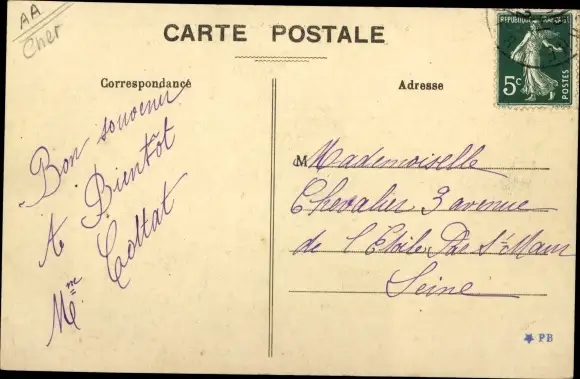 AA
Cher
CARTE POSTALE
Correspondance
Adresse
RÉPUBLIQUE FRANÇAISE
5c
POSTES
Bon souvenir
A Bientôt
Mme Cottat
Mademoiselle
Chevalier 3 avenue
de l'Etoile Pc St-Maur
Seine
PB